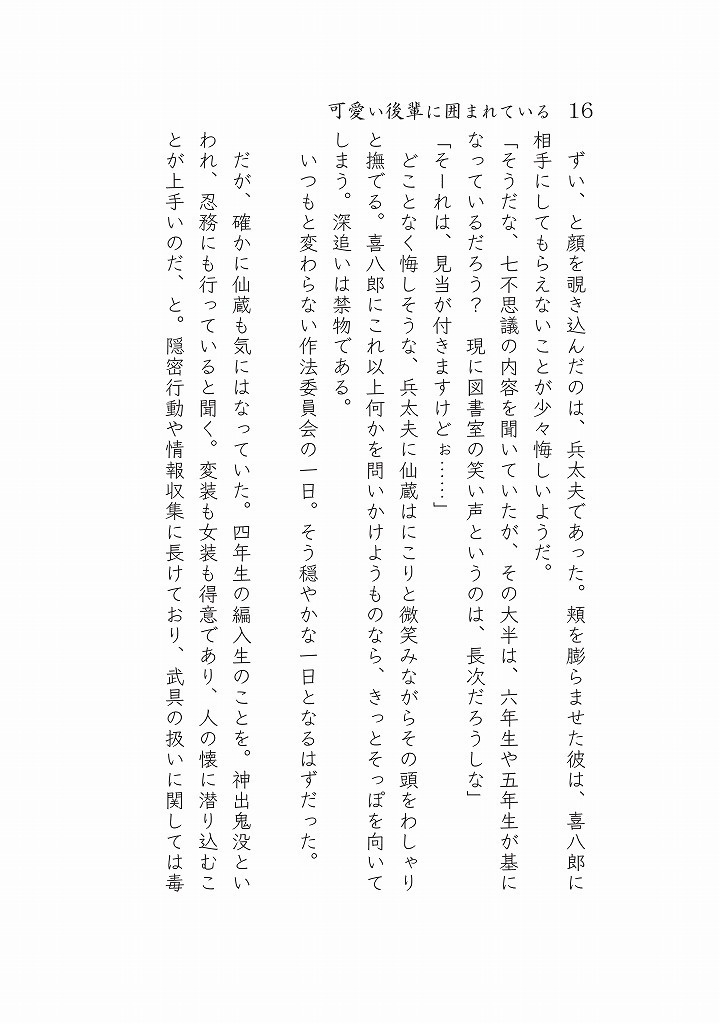 可愛い後輩に囲まれている　16
　ずい、と顔を覗き込んだのは、兵太夫であった。頬を膨らませた彼は、喜八郎に
相手にしてもらえないことが少々悔しいようだ。
「そうだな、七不思議の内容を聞いていたが、その大半は、六年生や五年生が基に
なっているだろう？　現に図書室の笑い声というのは、長次だろうしな」
「そーれは、見当が付きますけどぉ……」
　どことなく悔しそうな、兵太夫に仙蔵はにこりと微笑みながらその頭をわしゃり
と撫でる。喜八郎にこれ以上何かを問いかけようものなら、きっとそっぽを向いて
しまう。深追いは禁物である。
　いつもと変わらない作法委員会の一日。そう穏やかな一日となるはずだった。
　だが、確かに仙蔵も気にはなっていた。四年生の編入生のことを。神出鬼没とい
われ、忍務にも行っていると聞く。変装も女装も得意であり、人の懐に潜り込むこ
とが上手いのだ、と。隠密行動や情報収集に長けており、武具の扱いに関しては毒